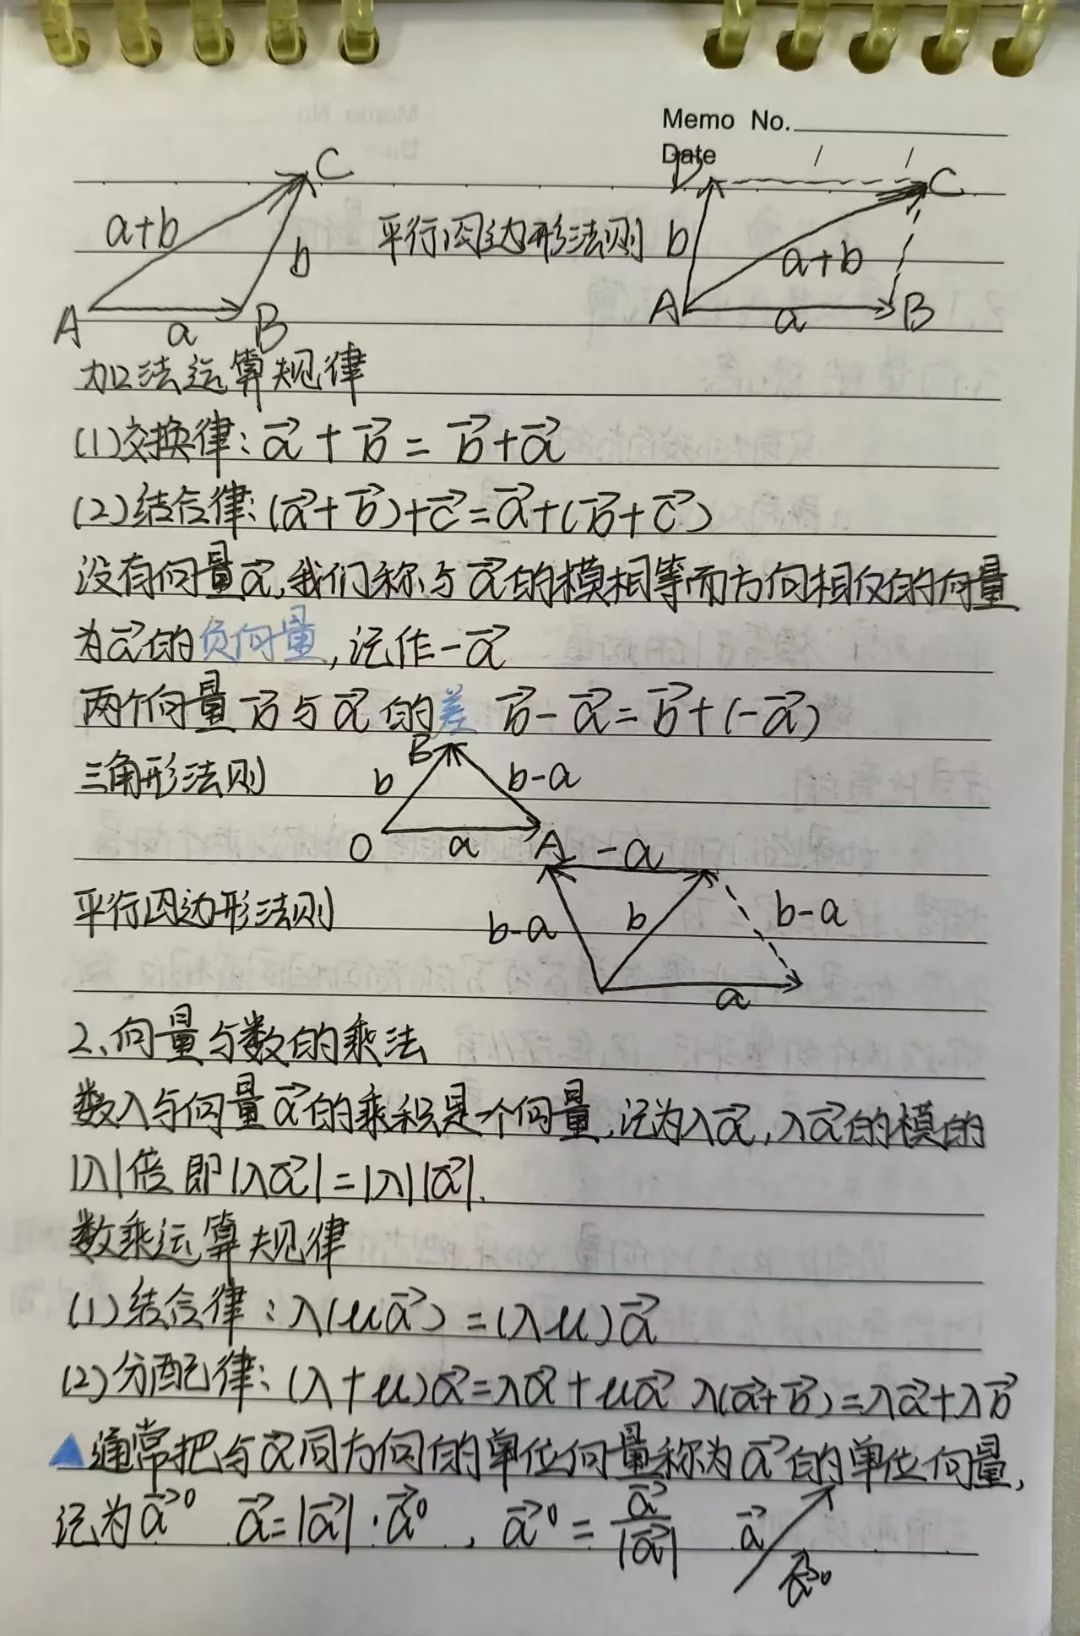 Memo No.
Date / /
D
C
C
a+b
b
平行四边形法则
b
a+b
A
a
B
A
a
B
加法运算规律
(1)交换律: a⃗ + b⃗ = b⃗ + a⃗
(2)结合律: (a⃗+b⃗)+c⃗=a⃗+(b⃗+c⃗)
没有向量a⃗,我们称与a⃗的模相等而方向相反的向量
为a⃗的负向量,记作-a⃗
两个向量b⃗与a⃗的差 b⃗-a⃗=b⃗+(-a⃗)
B
三角形法则
b
b-a
O
a
A
-a
平行四边形法则
b-a
b
b-a
a
2、向量与数的乘法
数入与向量a⃗的乘积是一个向量,记为λa⃗,λa⃗的模的
|λ|倍即|λa⃗|=|λ||a⃗|.
数乘运算规律
(1)结合律:λ(μa⃗)=(λμ)a⃗
(2)分配律:(λ+μ)a⃗=λa⃗+μa⃗ λ(a⃗+b⃗)=λa⃗+λb⃗
▲通常把与a⃗同方向的单位向量称为a⃗的单位向量,
记为a⃗⁰ a⃗=|a⃗|·a⃗⁰ , a⃗⁰=a⃗/|a⃗|
a⃗
a⃗⁰